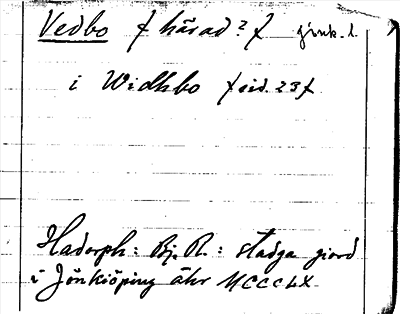 Vedbo f härad? f jönk. l.
i Widhbo f sid. 23 f
Hadorph: Bj. R.: stadga giord
i Jönkiöping åhr MCCCLX